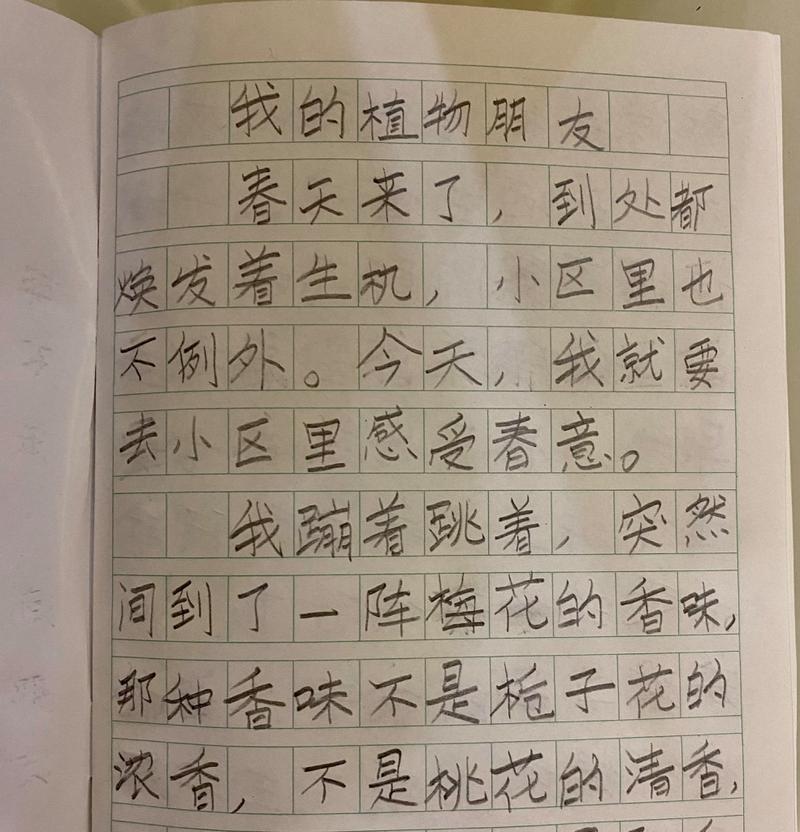 我的植物朋友
春天来了，到处都
焕发着生机，小区里也
不例外。今天，我就要
去小区里感受春意。
我蹦着跳着，突然
间到了一阵梅花的香味，
那种香味不是栀子花的
浓香，不是桃花的清香，